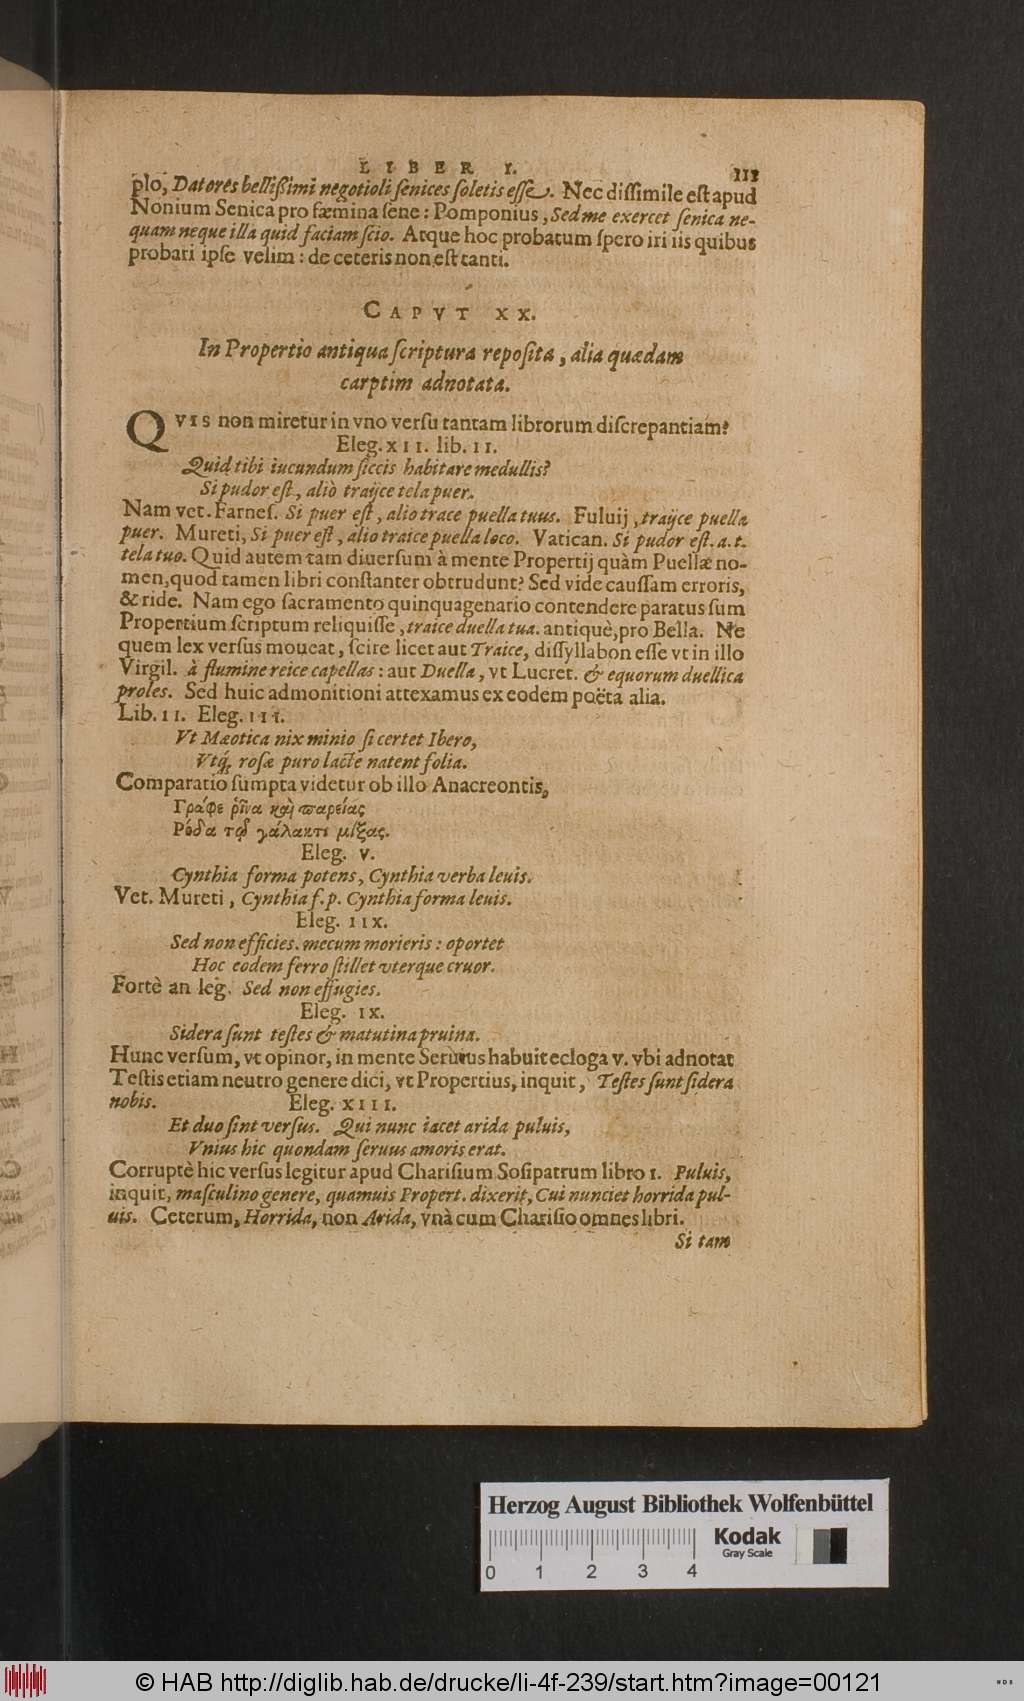 LIBER I. 111
plo, Datores bellißimi negotioli senices soletis esse. Nec dissimile est apud
Nonium Senica pro fæmina sene: Pomponius, Sed me exercet senica ne-
quam neque illa quid faciam scio. Atque hoc probatum spero iri iis quibus
probari ipse velim: de ceteris non est tanti.
CAPVT XX.
In Propertio antiqua scriptura reposita, alia quædam
carptim adnotata.
QVIS non miretur in vno versu tantam librorum discrepantiam?
Eleg. XII. lib. II.
Quid tibi iucundum siccis habitare medullis?
Si pudor est, aliò traijce tela puer.
Nam vet. Farnes. Si puer est, alio trace puella tuus. Fuluij, traijce puella
puer. Mureti, Si puer est, alio traice puella loco. Vatican. Si pudor est. a. t.
tela tuo. Quid autem tam diuersum à mente Propertij quàm Puellæ no-
men, quod tamen libri constanter obtrudunt? Sed vide caussam erroris,
& ride. Nam ego sacramento quinquagenario contendere paratus sum
Propertium scriptum reliquisse, traice duella tua. antiquè, pro Bella. Ne
quem lex versus moueat, scire licet aut Traice, dissyllabon esse vt in illo
Virgil. à flumine reice capellas: aut Duella, vt Lucret. & equorum duellica
proles. Sed huic admonitioni attexamus ex eodem poëta alia.
Lib. II. Eleg. III.
Vt Mæotica nix minio si certet Ibero,
Vtq́; rosæ puro lacte natent folia.
Comparatio sumpta videtur ob illo Anacreontis,
Γράφε ῥῖνα καὶ παρείας
Ρόδα τῷ γάλακτι μίξας.
Eleg. V.
Cynthia forma potens, Cynthia verba leuis.
Vet. Mureti, Cynthia f. p. Cynthia forma leuis.
Eleg. IIX.
Sed non efficies. mecum morieris: oportet
Hoc eodem ferro stillet vterque cruor.
Fortè an leg. Sed non effugies.
Eleg. IX.
Sidera sunt testes & matutina pruina.
Hunc versum, vt opinor, in mente Seruius habuit ecloga V. vbi adnotat
Testis etiam neutro genere dici, vt Propertius, inquit, Testes sunt sidera
nobis. Eleg. XIII.
Et duo sint versus. Qui nunc iacet arida puluis,
Vnius hic quondam seruus amoris erat.
Corruptè hic versus legitur apud Charisium Sosipatrum libro I. Puluis,
inquit, masculino genere, quamuis Propert. dixerit, Cui nunciet horrida pul-
uis. Ceterum, Horrida, non Arida, vnà cum Charisio omnes libri.
Si tam
Herzog August Bibliothek Wolfenbüttel
Kodak
Gray Scale
0 1 2 3 4
© HAB http://diglib.hab.de/drucke/li-4f-239/start.htm?image=00121